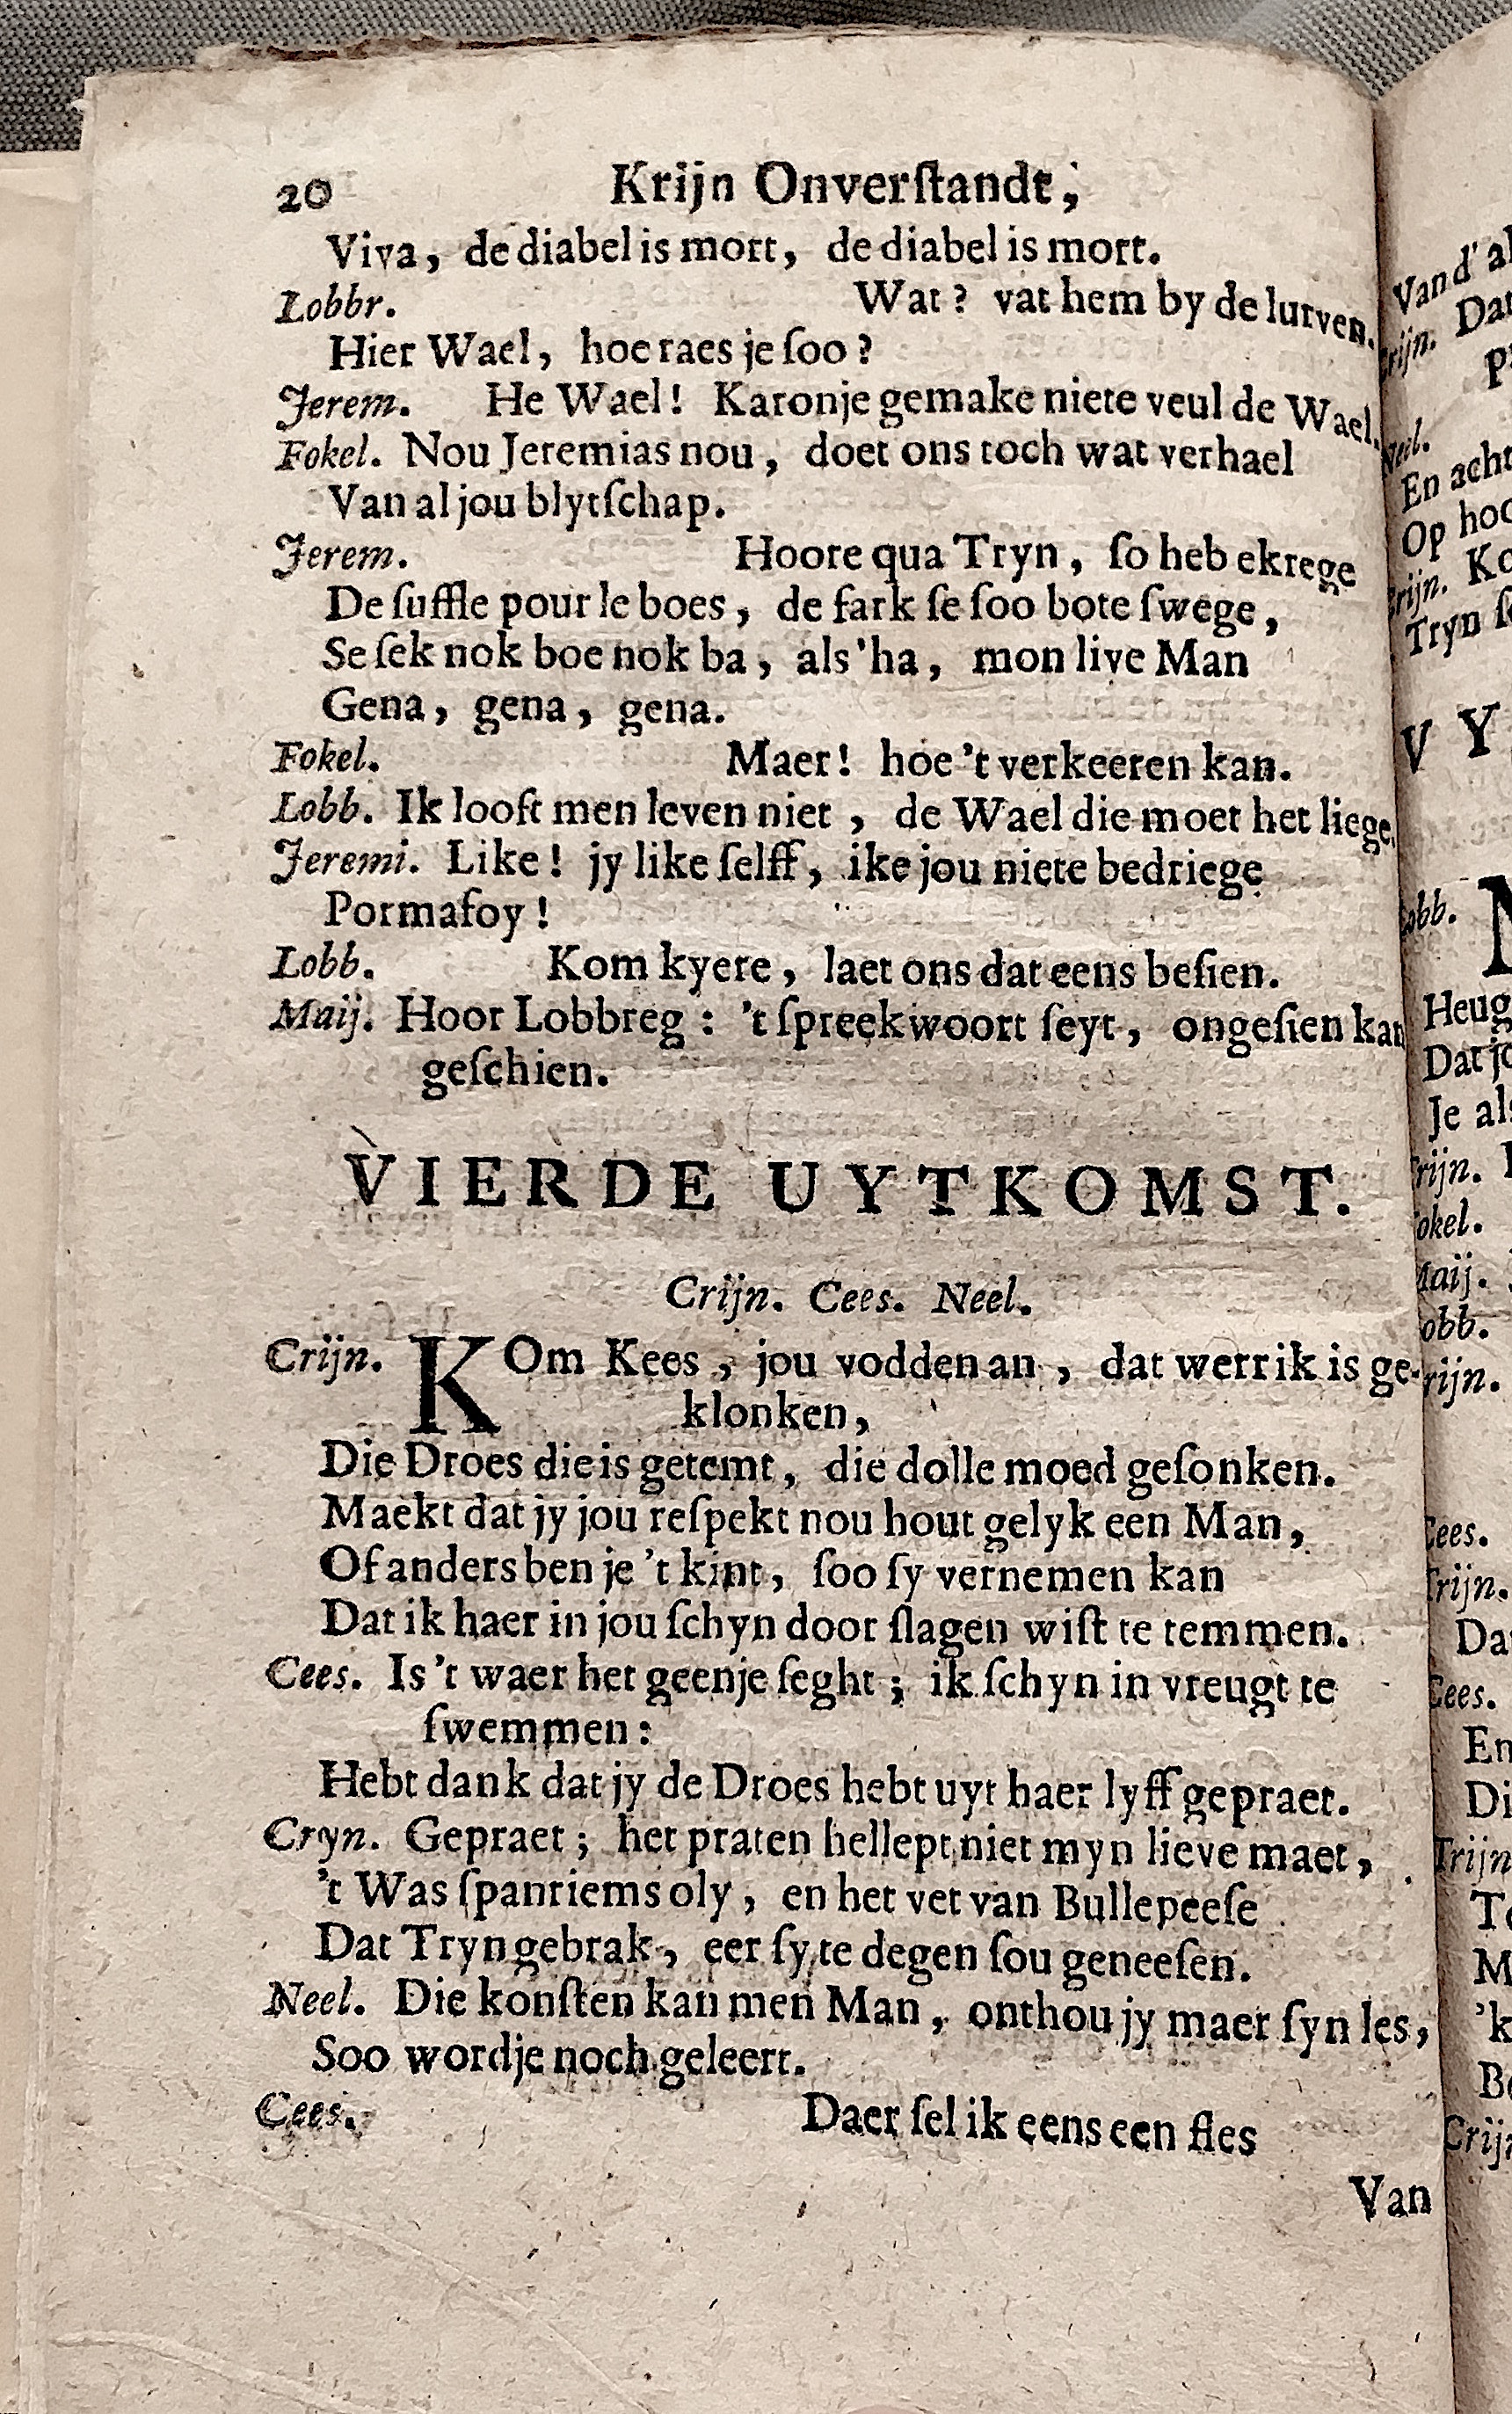 20 Krijn Onverſtandt,
Viva, de diabel is mort, de diabel is mort.
Lobbr. Wat? vat hem by de lurven.
Hier Wael, hoe raes je ſoo?
Jerem. He Wael! Karonje gemake niete veul de Wael.
Fokel. Nou Jeremias nou, doet ons toch wat verhael
Van al jou blytſchap.
Jerem. Hoore qua Tryn, ſo heb ekrege
De ſuffle pour le boes, de fark ſe ſoo bote ſwege,
Se ſek nok boe nok ba, als 'ha, mon live Man
Gena, gena, gena.
Fokel. Maer! hoe 't verkeeren kan.
Lobb. Ik looft men leven niet, de Wael die moet het liege.
Jeremi. Like! jy like ſelff, ike jou niete bedriege
Pormafoy!
Lobb. Kom kyere, laet ons dat eens beſien.
Maij. Hoor Lobbreg: 't ſpreekwoort ſeyt, ongeſien kan
geſchien.
VIERDE UYTKOMST.
Crijn. Cees. Neel.
Crijn. KOm Kees, jou vodden an, dat werrik is ge-
klonken,
Die Droes die is getemt, die dolle moed geſonken.
Maekt dat jy jou reſpekt nou hout gelyk een Man,
Of anders ben je 't kint, ſoo ſy vernemen kan
Dat ik haer in jou ſchyn door ſlagen wiſt te temmen.
Cees. Is 't waer het geenje ſeght; ik ſchyn in vreugt te
ſwemmen:
Hebt dank dat jy de Droes hebt uyt haer lyff gepraet.
Cryn. Gepraet; het praten hellept niet myn lieve maet,
't Was ſpanriems oly, en het vet van Bullepeeſe
Dat Tryn gebrak, eer ſy te degen ſou geneeſen.
Neel. Die konſten kan men Man, onthou jy maer ſyn les,
Soo wordje noch geleert.
Cees. Daer ſel ik eens een fles
Van